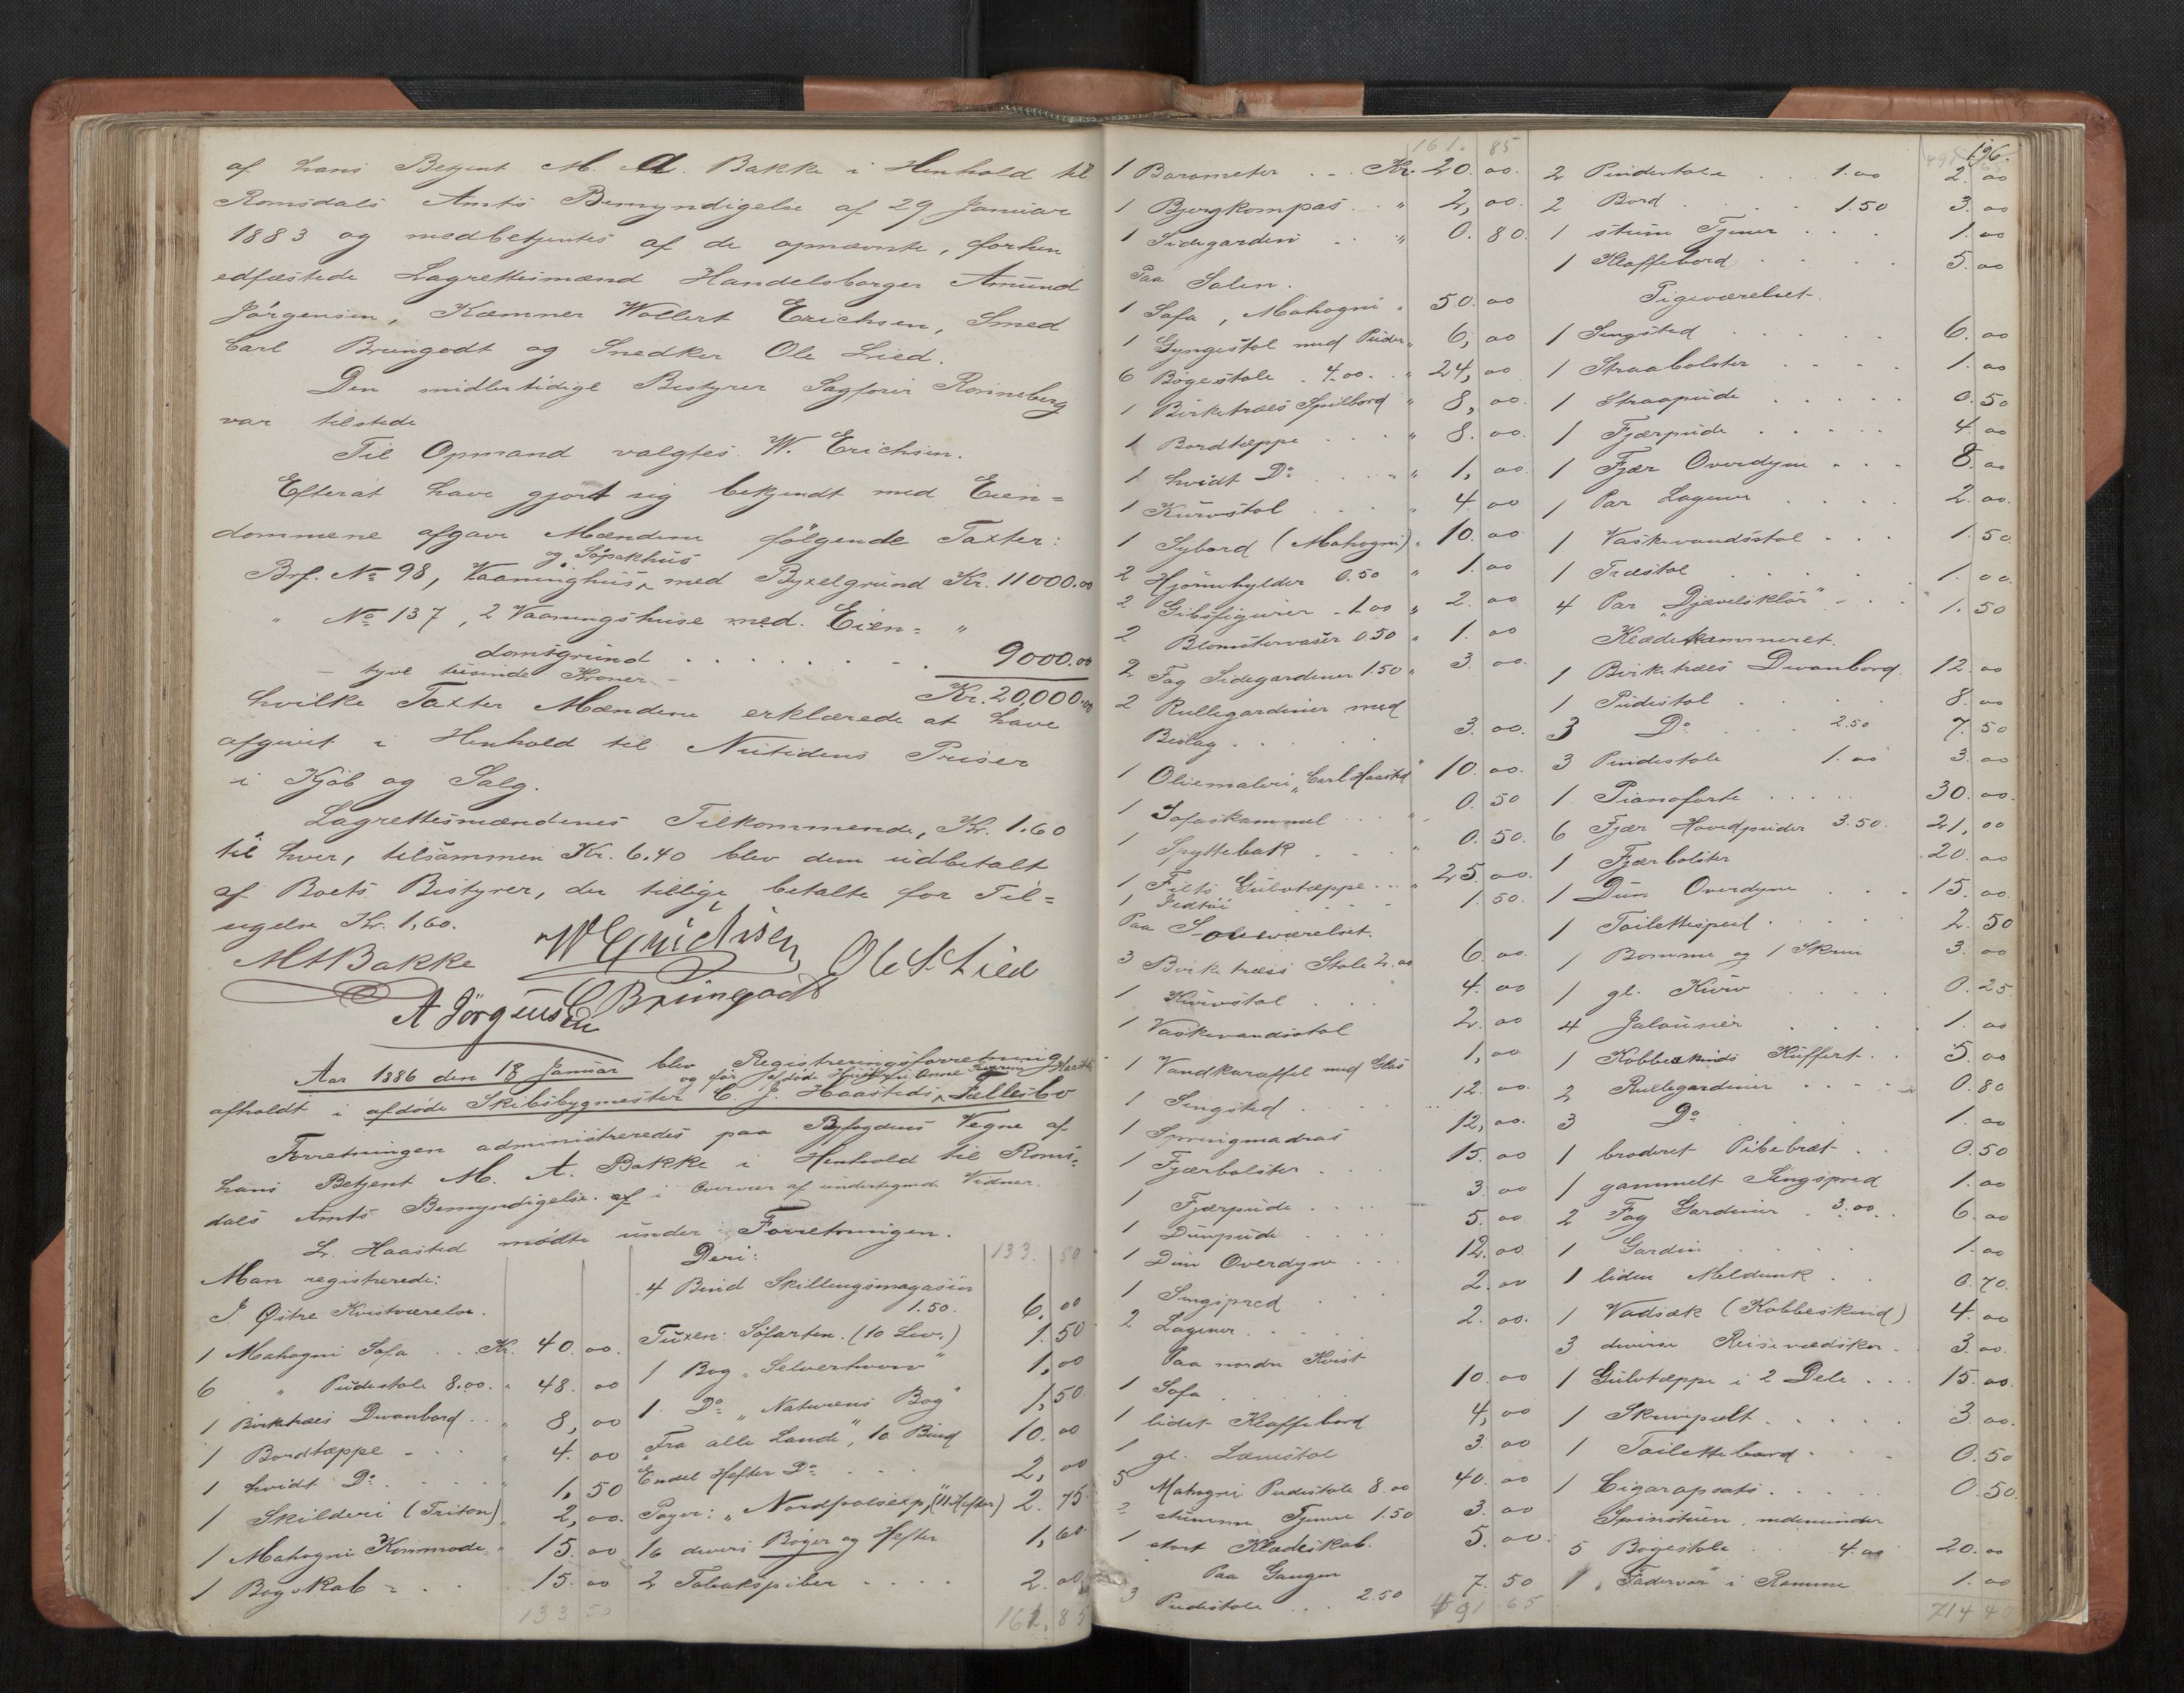 af hans Betjent M. A. Bakke i Henhold til
Romsdals Amts Bemyndigelse af 29 Januar
1883 og medbetjentes af de opnævnte, forhen
edfæstede Lagrettesmænd Handelsborger Amund
Jørgensen, Kæmner Wollert Erichsen, Smed
Carl Brungodt og Snedker Ole Lied.
Den midlertidige Bestyrer Sagfører Rønneberg
var tilstede
Til Opmand valgtes W. Erichsen.
Efterat have gjort sig bekjendt med Eien=
dommene afgave Mændene følgende Taxter:
og Søpakhus
Brf. No 98, Vaaninghus, med Byxelgrund Kr. 11000.00
" No 137, 2 Vaaningshuse med. Eien= "
domsgrund . . . . . . . . 9000.00
- tyve tusinde Kroner - Kr. 20,000.00
hvilke Taxter Mændene erklærede at have
afgivet i Henhold til Nutidens Priser
i Kjøb og Salg.
Lagrettesmændenes Tilkommende, Kr. 1.60
til hver, tilsammen Kr. 6.40 blev dem udbetalt
af Boets Bestyrer, der tillige betalte for Til=
sigelse Kr. 1,60.
MABakke W Erichsen Ole S. Lied
A Jørgensen C Brungodt
Aar 1886 den 18 Januar blev Registreringsforretning
og før afdøde Hustru Anne Haasteds
afholdt i afdøde Skibsbygmester C. J. Haasteds Fællesbo
Forretningen administreredes paa Byfogdens Vegne af
hans Betjent M. A. Bakke i Henhold til Roms-
dals Amts Bemyndigelse. af i Overvær af undertegnede Vidner.
L. Haasted mødte under Forretningen.
Man registrerede:
I Østre Kvistværelse.
1 Mahogni Sofa . . Kr. 40. 00.
6 " Pudestole 8.00. " 48. 00
1 Birketræes Divanbord . . " 8, 00
1 Bordtæppe - . . " 4. 00
1 hvidt Do . . . " 1, 50
1 Skilderi (Triton) " 2, 00.
1 Mahogni Kommode " 15. 00
1 Bogskab - . . 15. 00
133 50
Deri: 133. 50
4 Bind Skillingsmagasin
1.50. 6. 00
Tuxen: Søfarten. (10 Lev.) 1. 50
1 Bog "Selverhverv" 1, 00
1. Do "Naturens Bog" 1, 50
"Fra alle Lande", 10 Bind 10. 00
Endel Hefter Do . . . 2, 00
Payer: "Nordpolsexp." (11 Hefter) 2. 75
16 divers Bøger og Hefter 1, 60
2 Tobakspiber . . . . 2. 00
161, 85
161. 85
1 Barometer . . . Kr. 20. 00.
1 Bjergkompas . . " 2, 00.
1 Sidegardin . . " 0. 80.
Paa Salen.
1 Sofa, Mahogni . 50. 00
1 Gyngestol med Puder " 6, 00
6 Bøgestole . 4.00. . " 24, 00
1 Birketræes Spilbord " 8, 00.
1 Bordtæppe . . . " 8. 00.
1 hvidt Do . . . " 1, 00.
1 Kurvstol . . . " 4. 00
1 Sybord (Mahogni) " 10. 00
2 Hjørnehylder 0.50 " 1. 00
2 Gibsfigurer - 1.00 " 2. 00
2 Blomstervaser 0.50 " 1. 00
2 Fag Sidegardiner 1.50 " 3. 00.
2 Rullegardiner med
Beslag . . . . 3. 00.
1 Oliemaleri "Carl Haasted" 10. 00.
1 Sofaskammel . . . 0. 50
1 Spyttebak . . . " 0. 50.
1 Filts Gulvtæppe . . . " 25. 00.
1 . . . 1. 50.
Paa Soveværelset.
3 Birketræes Stole 2.00 6. 00.
1 Kurvstol . . . 4. 00
1 Vaskevandsstol 2. 00
1 Vandkaraffel med Glas 1, 00
1 Sengsted . . . . 12. 00.
1 Springmadras 12, 00.
1 Fjærbolster . . . 15. 00
1 Fjærpude . . . . 3. 00
1 Dunpude . . . . 5. 00
1 Dun Overdyne . . . 12. 00.
1 Sengspred . . . 2. 00
2 Lagener . . . . 2. 00.
Paa nordre Kvist
1 Sofa . . . . . 10. 00
1 lidet Klaffebord 4, 00
1 gl. Lænstol 3. 00
5 Mahogni Pudestole 8.00 40. 00
2 stumme Tjenere 1.50 3. 00
1 stort Klædeskab. 5. 00.
Paa Gangen
3 Pudestole . . . 2.50 7. 50
491.65
196.
2 Pindestole . . . 1.00 2. 00
2 Bord . . . . 1.50 3. 00
1 stum Tjener . . . 1. 00
1 Klaffebord . . . . 5. 00
Pigeværelset.
1 Sengsted . . . . 6. 00
1 Straabolster . . . . 1. 00
1 Straapude . . . . . 0. 50
1 Fjærpude . . . . . 4. 00
1 Fjær Overdyne . . . 8. 00
1 Par Lagener . . . . 2. 00.
1 Vaskevandsstol . . . 1. 50
1 Træstol . . . . . 1. 00.
4 Par "Djævelsklør" - . . 1. 50
Klædekammeret.
1 Birketræes Divanbord. 12. 00
1 Pudestol . . . . 8. 00
3 Do . . . 2.50 7. 50
3 Pindestole 1.00 3. 00
1 Pianoforte . . . . . 30. 00.
6 Fjær Hovedpuder 3.50. 21, 00
1 Fjærbolster 20. 00
1 Dun Overdyne . . . 15. 00.
1 Toilettespeil . . . . . 2. 50
1 Bomme og 1 Skrin 3. 00
1 gl. Kurv . . . . 0. 25
4 Jalousier . . . . 1. 00
1 Kobbeskinds Kuffert . . 5. 00
2 Rullegardiner . . . . 0. 80
3 Do . . . . 1. 00
1 broderet Pibebræt . . 0. 50
1 gammelt Sengspred 1. 00
2 Fag Gardiner . 3.00. . 6. 00
1 Gardin 1. 00
1 liden Meldunk . . 0. 70.
1 Vadsæk (Kobbeskind) 4. 00
3 diverse Reisevædsker . 3. 00.
1 Gulvtæppe i 2 Dele . . . 15. 00.
1 Skrivpult . . . . . 3. 00.
1 Toilettebord . . . 0. 50
1 Cigaropsats . . . . . 0. 50.
Spisestuen nedenunder
5 Bøgestole . . 4.00 20. 00
1 "Fadervor" i Ramme 1. 00
714 40